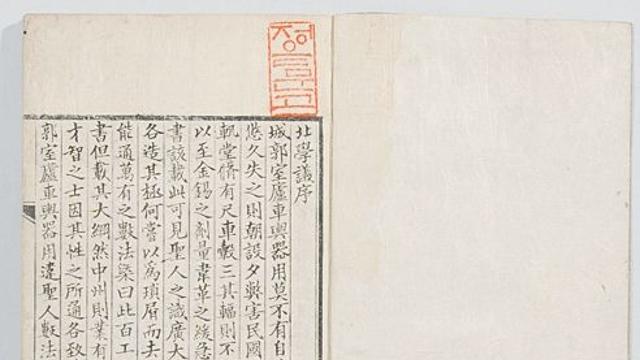 北學議序
城郭室廬車輿器用莫不有自
悠久失之則朝設夕弊害民國
軌堂脩有尺車轂三其輻則不
以至金錫之劑量韋革之緩急
書該載此可見聖人之識廣大
各造其極何嘗以爲瑣屑而夫
能通萬有之數法槩曰此百工
書但載其大綱然中州則業有
才智之士因其性之所通各致
郭室廬車輿器用違聖人數法